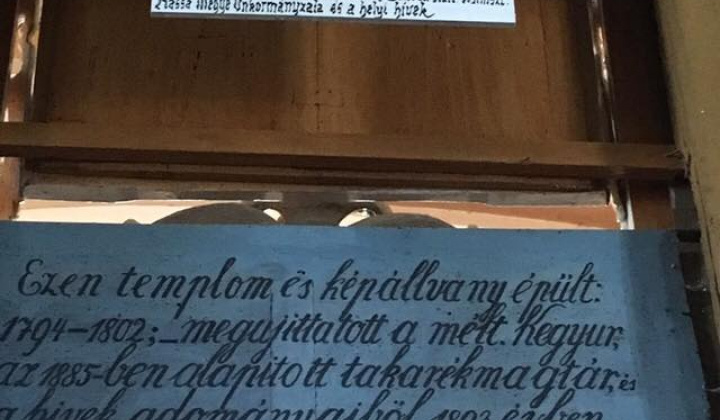 Krassó Megye Önkormányzata és a helyi hívek
Ezen templom és képállvany épült:
1794–1802; – megujittatott a mélt. Kegyur,
az 1885-ben alapitott takarékmagtár, és
a hivek adományaiból 1893 évben